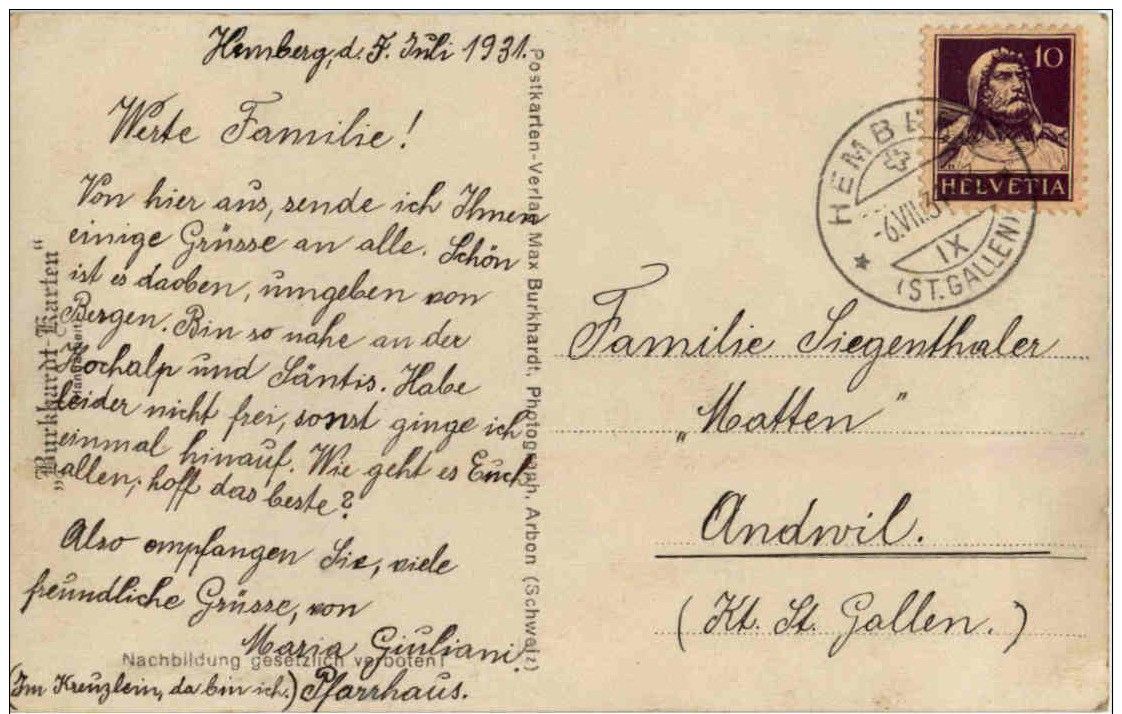 Hemberg, d. 5. Juli 1931.
Werte Familie!
Von hier aus, sende ich Ihnen
einige Grüsse an alle. Schön
ist es daoben, umgeben von
Bergen. Bin so nahe an der
Hochalp und Säntis. Habe
leider nicht frei, sonst ginge ich
einmal hinauf. Wie geht es Euch
allen, hoff das beste?
Also empfangen Sie, viele
freundliche Grüsse, von
Maria Giuliani.
(Im Kreuzlein, da bin ich.) Pfarrhaus.
„Burkhardt-Karten“
Nachbildung gesetzlich verboten!
Postkarten-Verlag Max Burkhardt, Photograph, Arbon (Schweiz)
10
HELVETIA
HEMBE
-6.VII.3
IX
(ST. GALLEN)
Familie Siegenthaler
„Matten“
Andwil.
(Kt. St. Gallen.)